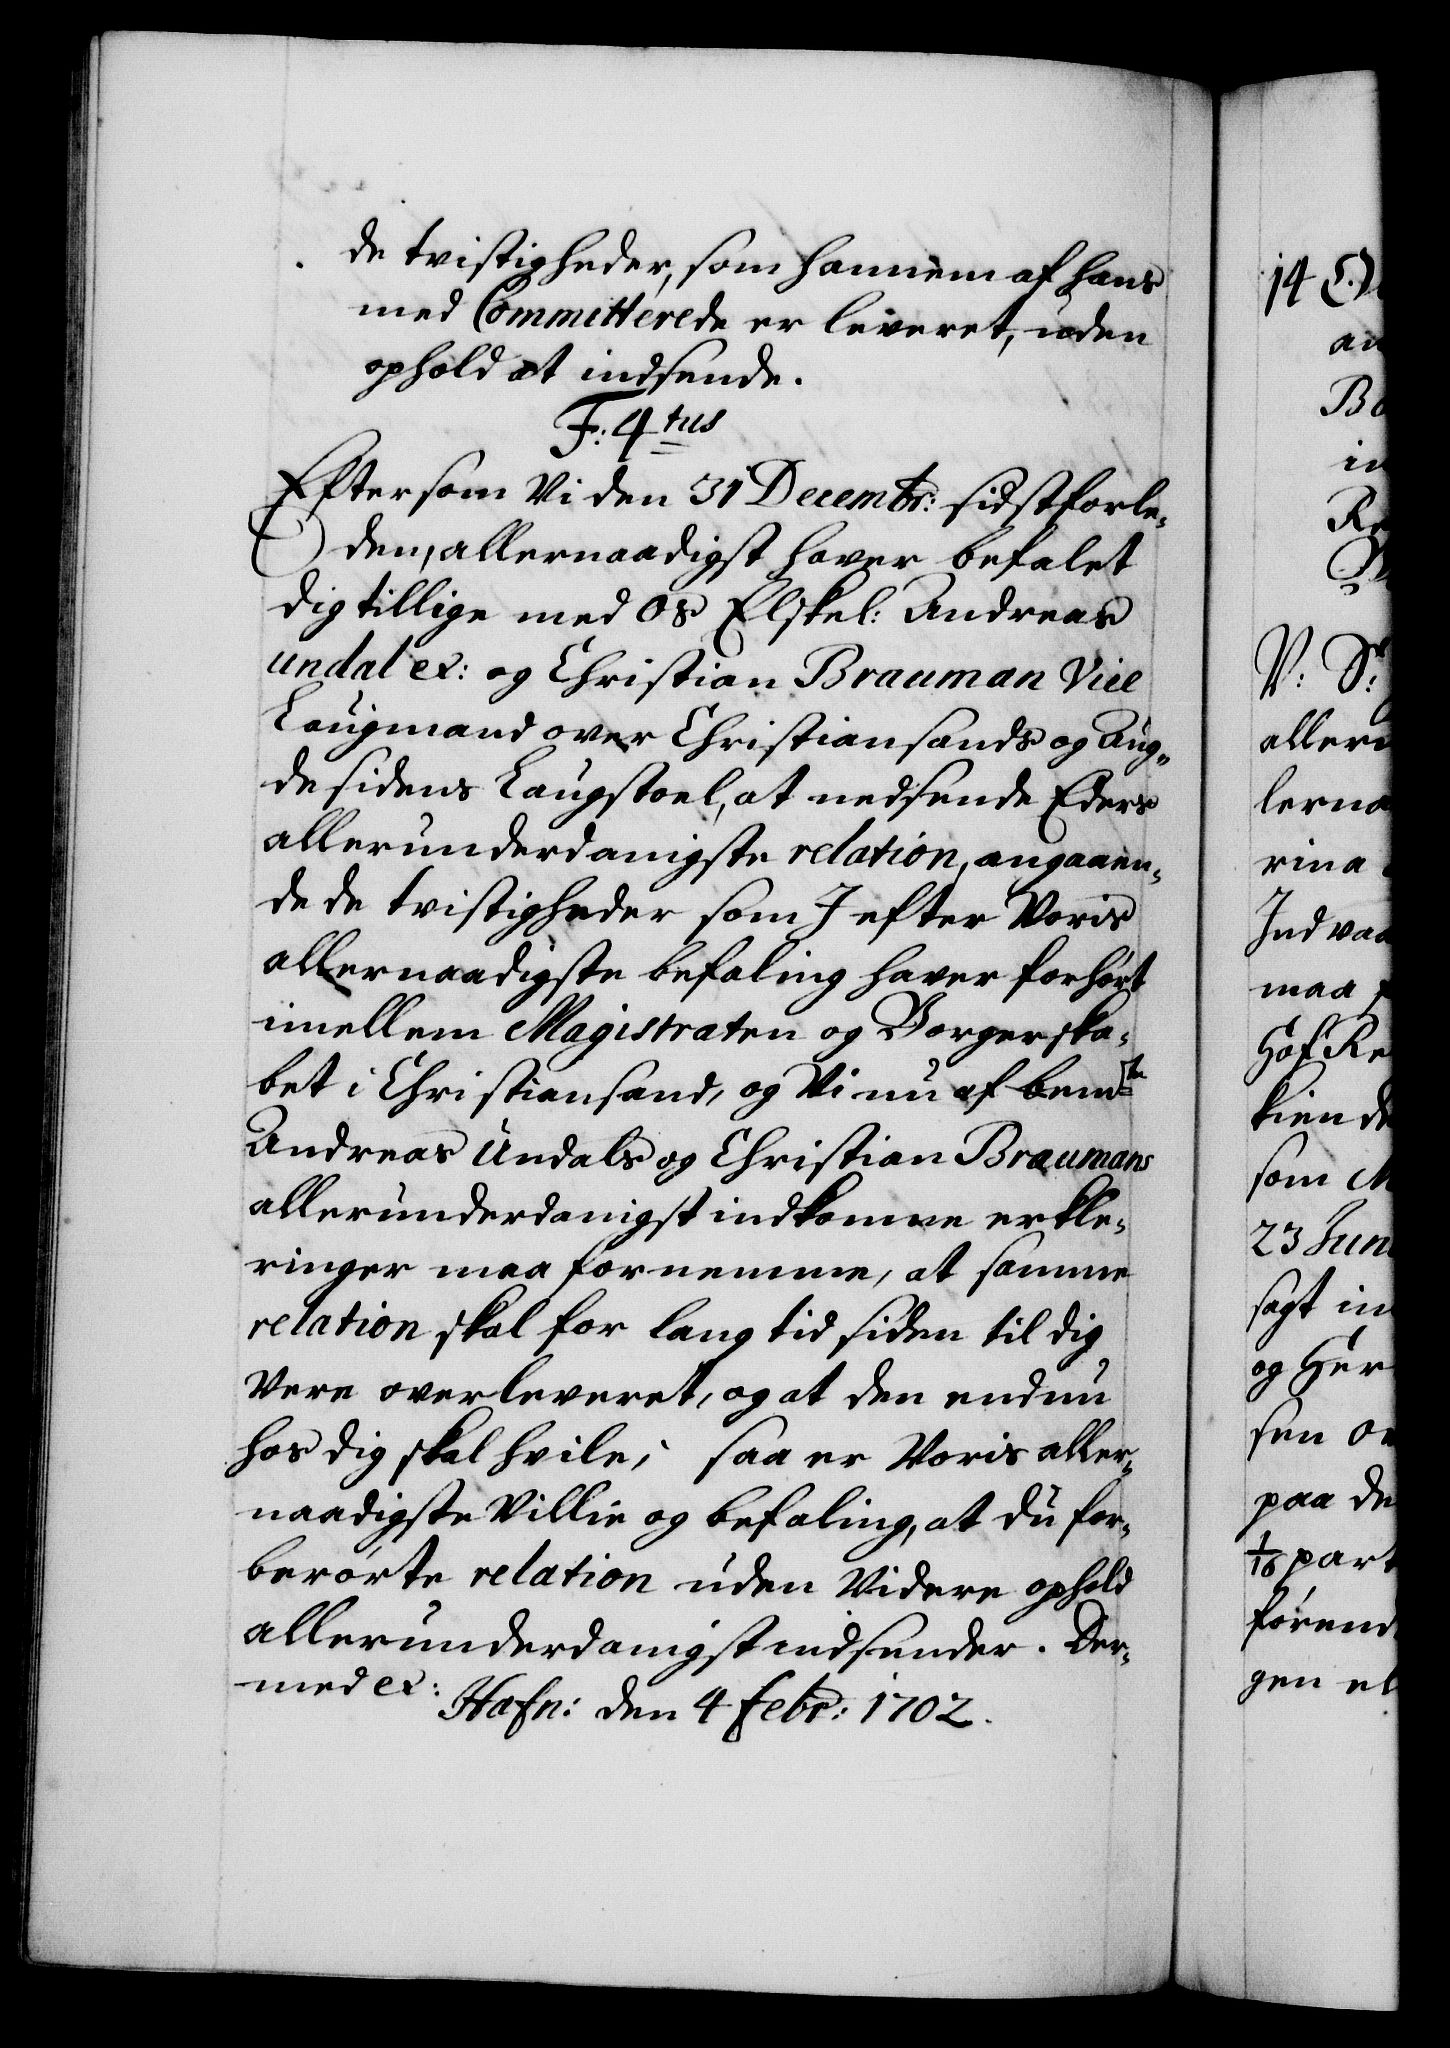 de tvistigheder, som hannem af hans
med Committerede er leveret, uden
ophold at indsende.
F: 4tus
Eftersom Vi den 31 Decembr: sidstforle-
den, allernaadigst haver befalet
dig tillige med os Elskel: Andreas
undal ec: og Christian Brauman Vice
Laugmand over Christiansands og Aug-
desidens Laugstoel, at nedsende Eders
allerunderdanigste relation, angaaen-
de de tvistigheder som I efter Voris
allernaadigste befaling haver forhørt
imellem Magistraten og Borgerska-
bet i Christiansand, og Vi nu af bemte
Andreas Undals og Christian Braumans
allerunderdanigst indkomne erkle-
ringer maa fornemme, at samme
relation skal for lang tid siden til dig
Vere overleveret, og at den endnu
hos dig skal hvile; saa er Voris aller-
naadigste Villie og befaling, at du for-
berørte relation uden Videre ophold
allerunderdanigst indsender. Der-
med ec:
Hafn: den 4 Febr: 1702.
14
an
Bo
in
Re
V: S:
allern
lerna
rina
Indvaa
maa
Hof Re
kiende
som M
23 Juni
sagt in
og Her
sen ov
paa de
1/16 part
førend
gen el